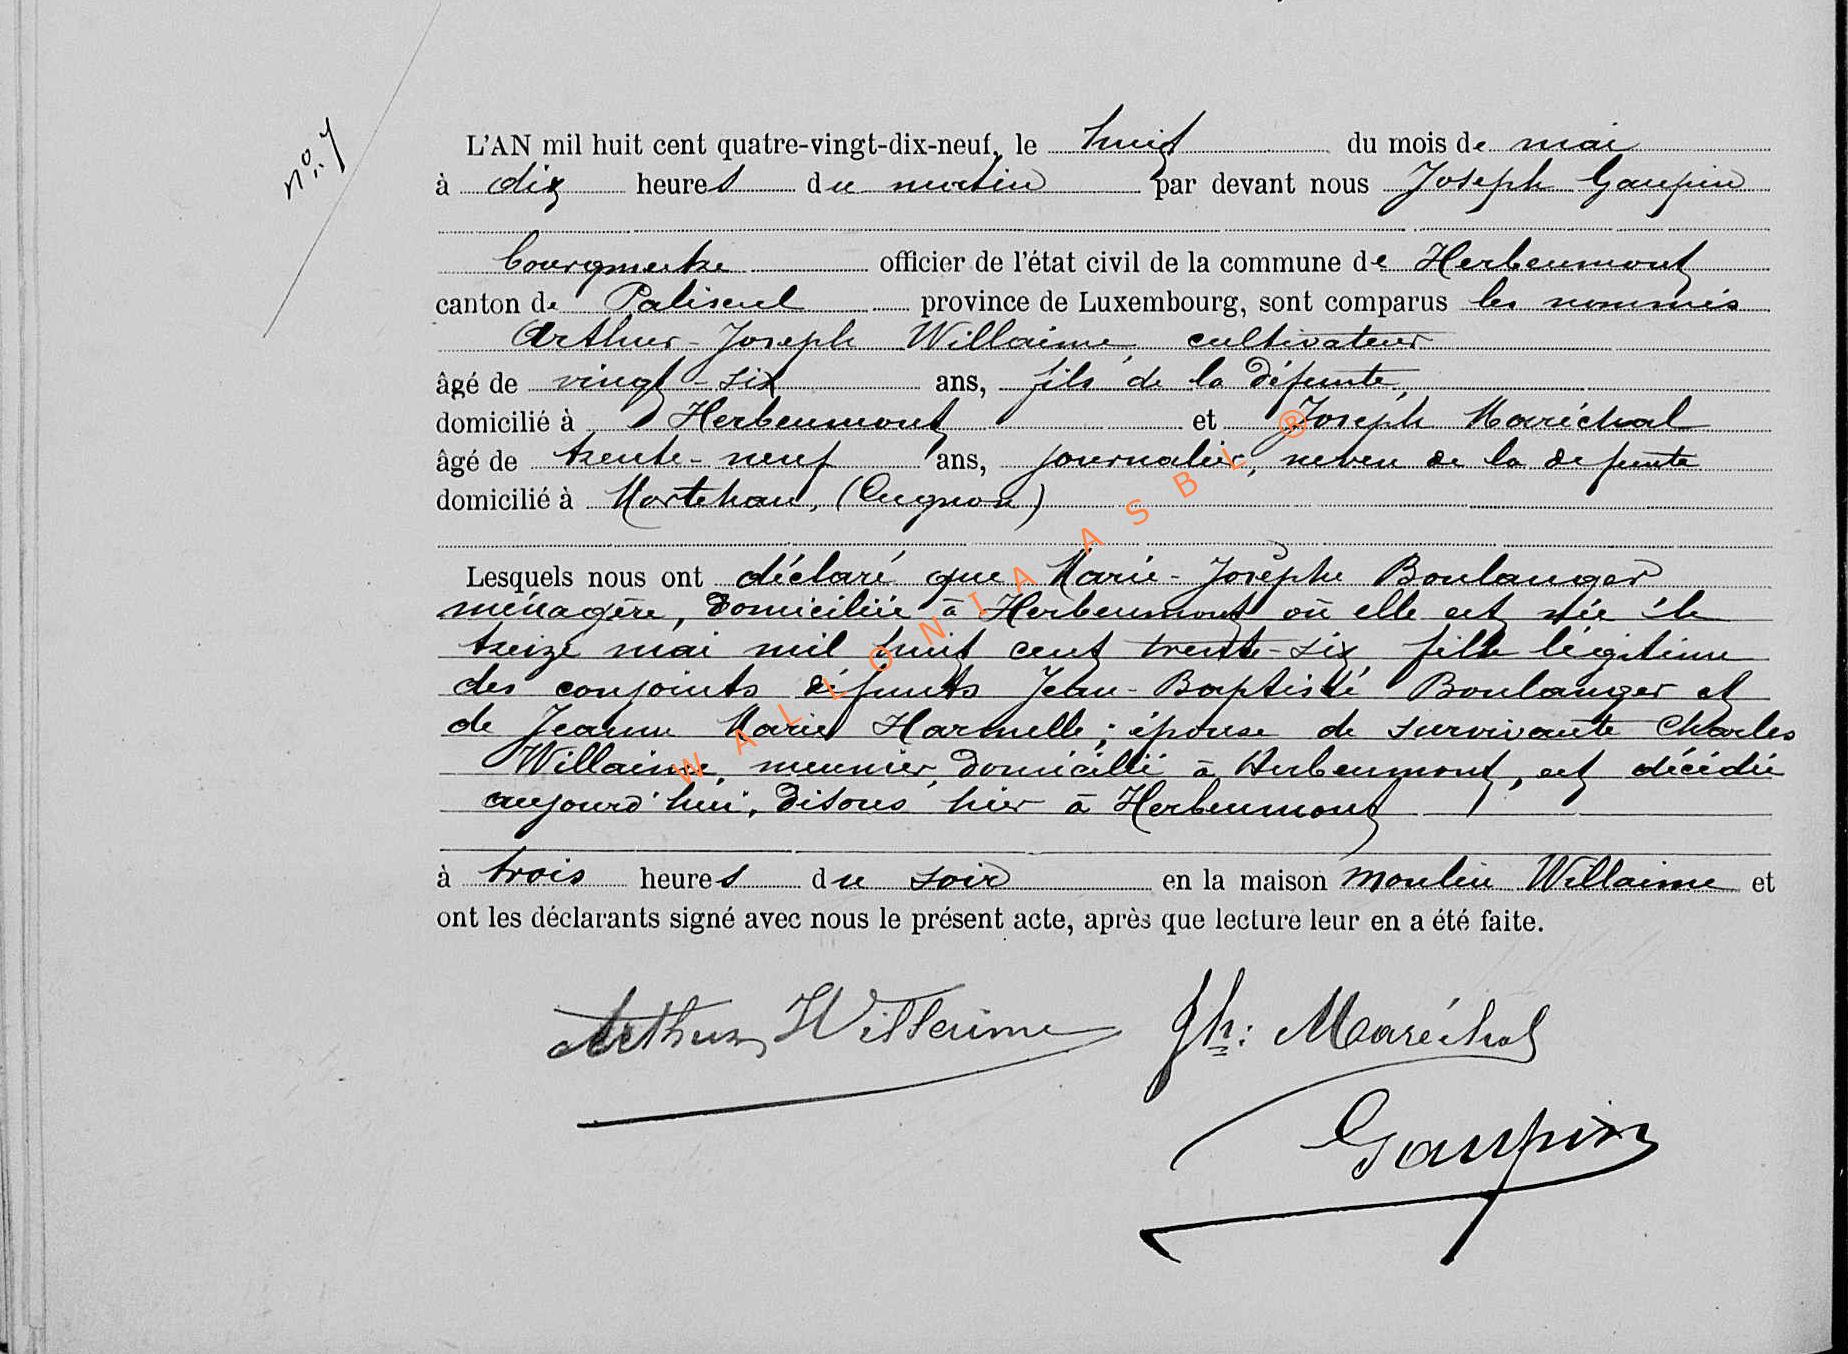 n°. 7
L'AN mil huit cent quatre-vingt-dix-neuf, le huit du mois de mai
à dix heures du matin par devant nous Joseph Gaupin
bourgmestre officier de l'état civil de la commune de Herbeumont
canton de Paliseul province de Luxembourg, sont comparus les nommés
Arthur-Joseph Willaime, cultivateur
âgé de vingt-six ans, fils de la défunte,
domicilié à Herbeumont et Joseph Maréchal
âgé de trente-neuf ans, journalier, neveu de la défunte
domicilié à Mortehan, (Cugnon)
Lesquels nous ont déclaré que Marie-Josèphe Boulanger
ménagère, domiciliée à Herbeumont où elle est née le
treize mai mil huit cent trente-six, fille légitime
des conjoints défunts Jean-Baptiste Boulanger et
de Jeanne Marie Harmelle; épouse de survivante Charles
Willaime, meunier, domicilié à Herbeumont, est décédée
aujourd'hui, disons hier à Herbeumont
à trois heures du soir en la maison moulin Willaime et
ont les déclarants signé avec nous le présent acte, après que lecture leur en a été faite.
Arthur Willaime Jh: Maréchal
Gaupin
WALLONIA ASBL ®